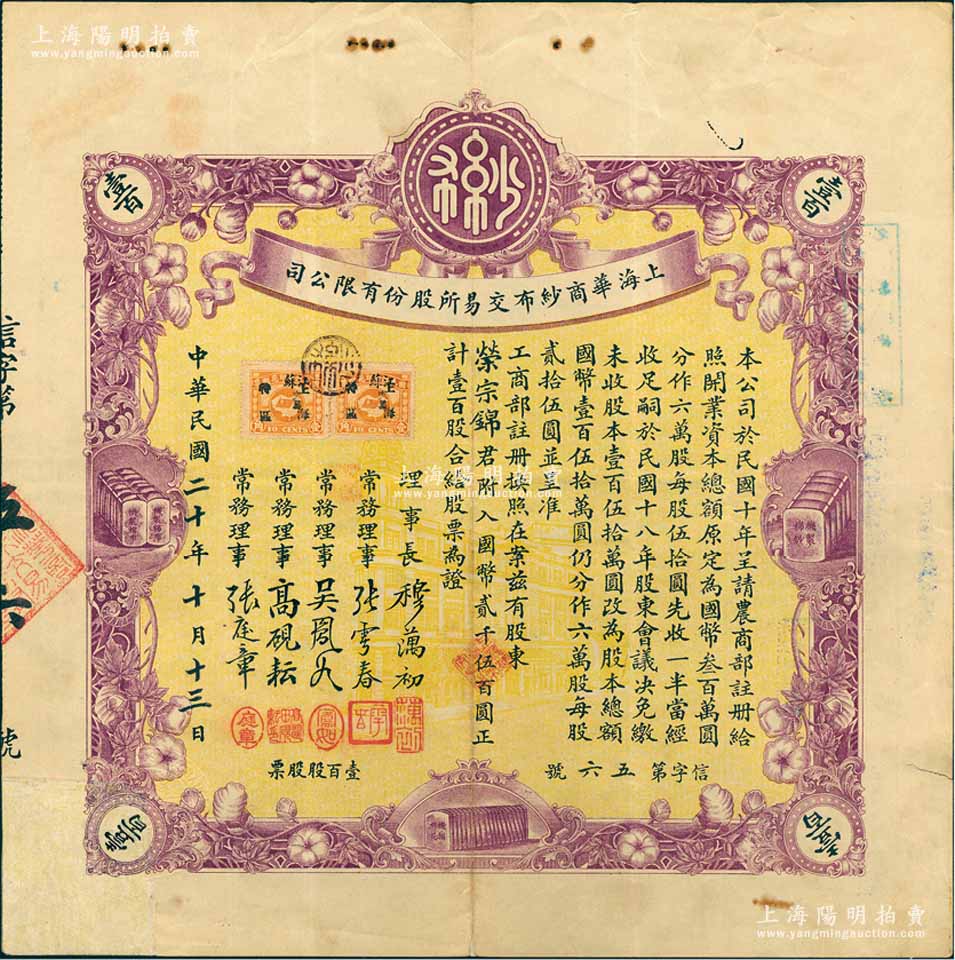 上海陽明拍賣
www.yangmingauction.com
紗布
壹百
壹百
上海華商紗布交易所股份有限公司
本公司於民國十年呈請農商部註册給
照開業資本總額原定為國幣叁百萬圓
分作六萬股每股伍拾圓先收一半當經
收足嗣於民國十八年股東會議決免繳
未收股本壹百伍拾萬圓改為股本總額
國幣壹百伍拾萬圓仍分作六萬股每股
貳拾伍圓並呈准
工商部註册換照在案兹有股東
榮宗錦君附入國幣貳千伍百圓正
計壹百股合給股票為證
理事長 穆藕初
常務理事 張雲春
常務理事 吳
常務理事 高硯耘
常務理事 張庭章
中華民國二十年十月十三日
10 CENTS
10 CENTS
信字第五六號
壹百股股票
信字第五六號
壹百
壹百
上海陽明拍賣
www.yangmingauction.com